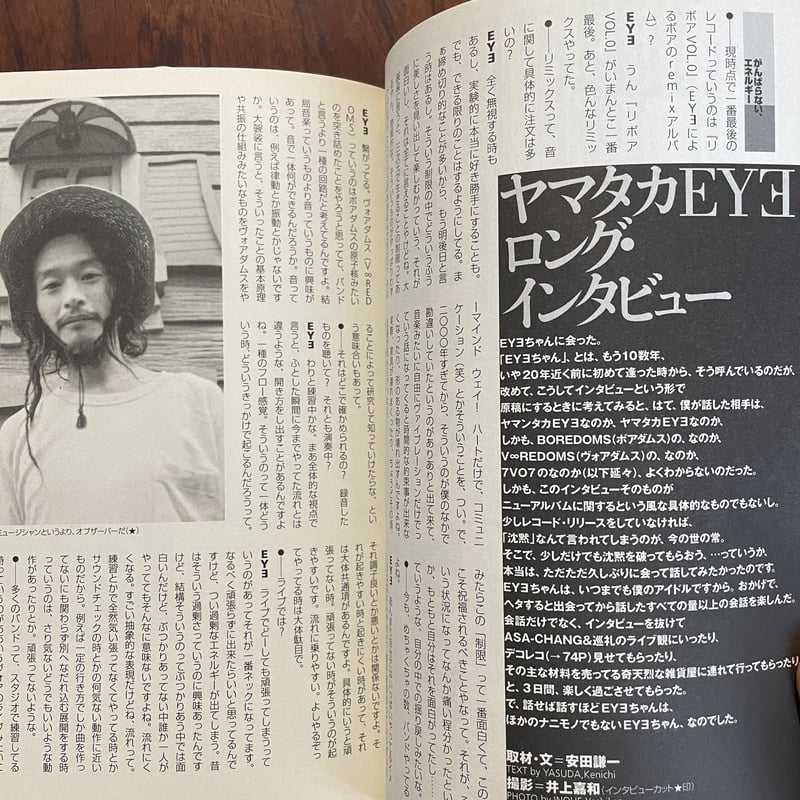 がんばらない、
エネルギー
ヤマタカEYヨ
ロング・
インタビュー
EYヨちゃんに会った。
「EYヨちゃん」、とは、もう10数年、
いや20年近く前に初めて逢った時から、そう呼んでいるのだが、
改めて、こうしてインタビューという形で
原稿にするときに考えてみると、はて、僕が話した相手は、
ヤマンタカEYヨなのか、ヤマタカEYヨなのか、
しかも、BOREDOMS(ボアダムス)の、なのか、
V∞REDOMS(ヴォアダムス)の、なのか、
7VO7のなのか(以下延々)、よくわからないのだった。
しかも、このインタビューそのものが
ニューアルバムに関するという風な具体的なものでもないし。
少しレコード・リリースをしていなければ、
「沈黙」なんて言われてしまうのが、今の世の常。
そこで、少しだけでも沈黙を破ってもらおう、…っていうか、
本当は、ただただ久しぶりに会って話してみたかったのです。
EYヨちゃんは、いつまでも僕のアイドルですから。おかげで、
ヘタすると出会ってから話したすべての量以上の会話を楽しんだ。
会話だけでなく、インタビューを抜けて
ASA-CHANG&巡礼のライブ観にいったり、
デコレコ(→74P)見せてもらったり、
その主な材料を売ってる奇天烈な雑貨屋に連れて行ってもらったり
と、3日間、楽しく過ごさせてもらった。
で、話せば話すほどEYヨちゃんは、
ほかのナニモノでもないEYヨちゃん、なのでした。
取材・文=安田謙一
TEXT by YASUDA,Kenichi
撮影=井上嘉和(インタビューカット★印)
●――現時点で一番最後の
レコードっていうのは『リ
ボアVOL.0』(EYヨによ
るボアのremixアルバ
ム)?
EYヨ うん『リボア
VOL.0』がいまんとこ一番
最後。あと、色んなリミッ
クスやってた。
●――リミックスって、音
に関して具体的に注文は多
いの?
EYヨ 全く無視する時も
あるし、実験的に本当に好き勝手にすることも。
でも、できる限りのことはするようにしてる。ま
ぁ締め切り的なことが多いから、もう明後日と言
う時はあるし、そういう制限の中でどういうふう
に美しさを見い出して楽しむかっていう、それが
ーマインド ウェイ! ハートだけで、コミュニ
ケーション(笑)とかそういうことを、つい。で、
二〇〇〇年すぎてから、そういうのが僕のなかで
勘違いしていたというのがありありと出て来て、
音楽みたいに自由にヴァイブレーションだけでっ
ていう話になってくると時間的な約束事が出来な
みたらこの「制限」って一番面白くて、この
こそ祝福されるべきことやなって。それが、こ
いう状況になってなんか痛い程分かったとい
か、もともと自分はそれを面白がってたし……
ていうような、自分の中での掘り戻しみたいな、
よね。
●――今も、めちゃくちゃの数、バンドやってる
EYヨ 繋がってる。ヴォアダムス(V∞RED
OMS)っていうのはボアダムスの原子核みたい
のを突き詰めたことをやろうと思ってて、バンド
と言うより一種の回路だと考えてるんですよ。結
局音楽っていうものより音っていうものに興味が
あって。音で一体何ができるんだろうか。音って
いうのは、例えば律動とか振動とかじゃないです
か。大袈裟に言うと、そういったことの基本原理
や共振の仕組みみたいなものをヴォアダムスをや
ることによって研究して知っていけたらな、とい
う意味合いもあって。
●――それはどこで確かめられるの? 録音した
ものを聴いて? それとも演奏中?
EYヨ わりと練習中かな。まあ全体的な視点で
言うと、ふとした瞬間に今までやってた流れとは
違うような、開き方をし出すことがあるんですよ
ね。一種のフロー感覚。そういうのって一体どう
いう時、どういうきっかけで起こるんだろうって。
それ調子良いとか悪いとかは関係ないですよ、そ
れが起きやすい時と起きにくい時があって、それ
は大体共通項があるんですよ。具体的にいうと頑
張ってない時。頑張ってない時がそういうのが起
きやすいです。流れに乗りやすい。よしやるぞっ
てやってる時は大体駄目で。
●――ライブでは?
EYヨ ライブでどーしても頑張ってしまうって
いうのがあってそれが一番ネックになってます。
なるべく頑張らずに出来たらいいと思ってるんで
すけど、つい過剰なエネルギーが出てしまう。昔
はそういう過剰さっていうのに興味あったんです
けど、結構そういうのってぶつかりあう中では面
白いんだけど、ぶつかりあってない中誰か一人が
やっててもそんなに意味ないですよね。流れにく
くなる。すごい抽象的な表現だけどね、流れって。
練習とかで全然気い張ってなくてやってる時とか
サウンドチェックの時とかの何気ない動作に近い
ものだから。例えば一定の行き方でしか曲を作っ
てないにも関わらず別へなだれ込む展開をする時
っていうのは、さり気ないどうでもいいような動
作があったりとか。頑張ってないような。
●――多くのバンドって、スタジオで練習してる
ミュージシャンというより、オブザーバーだ(★)